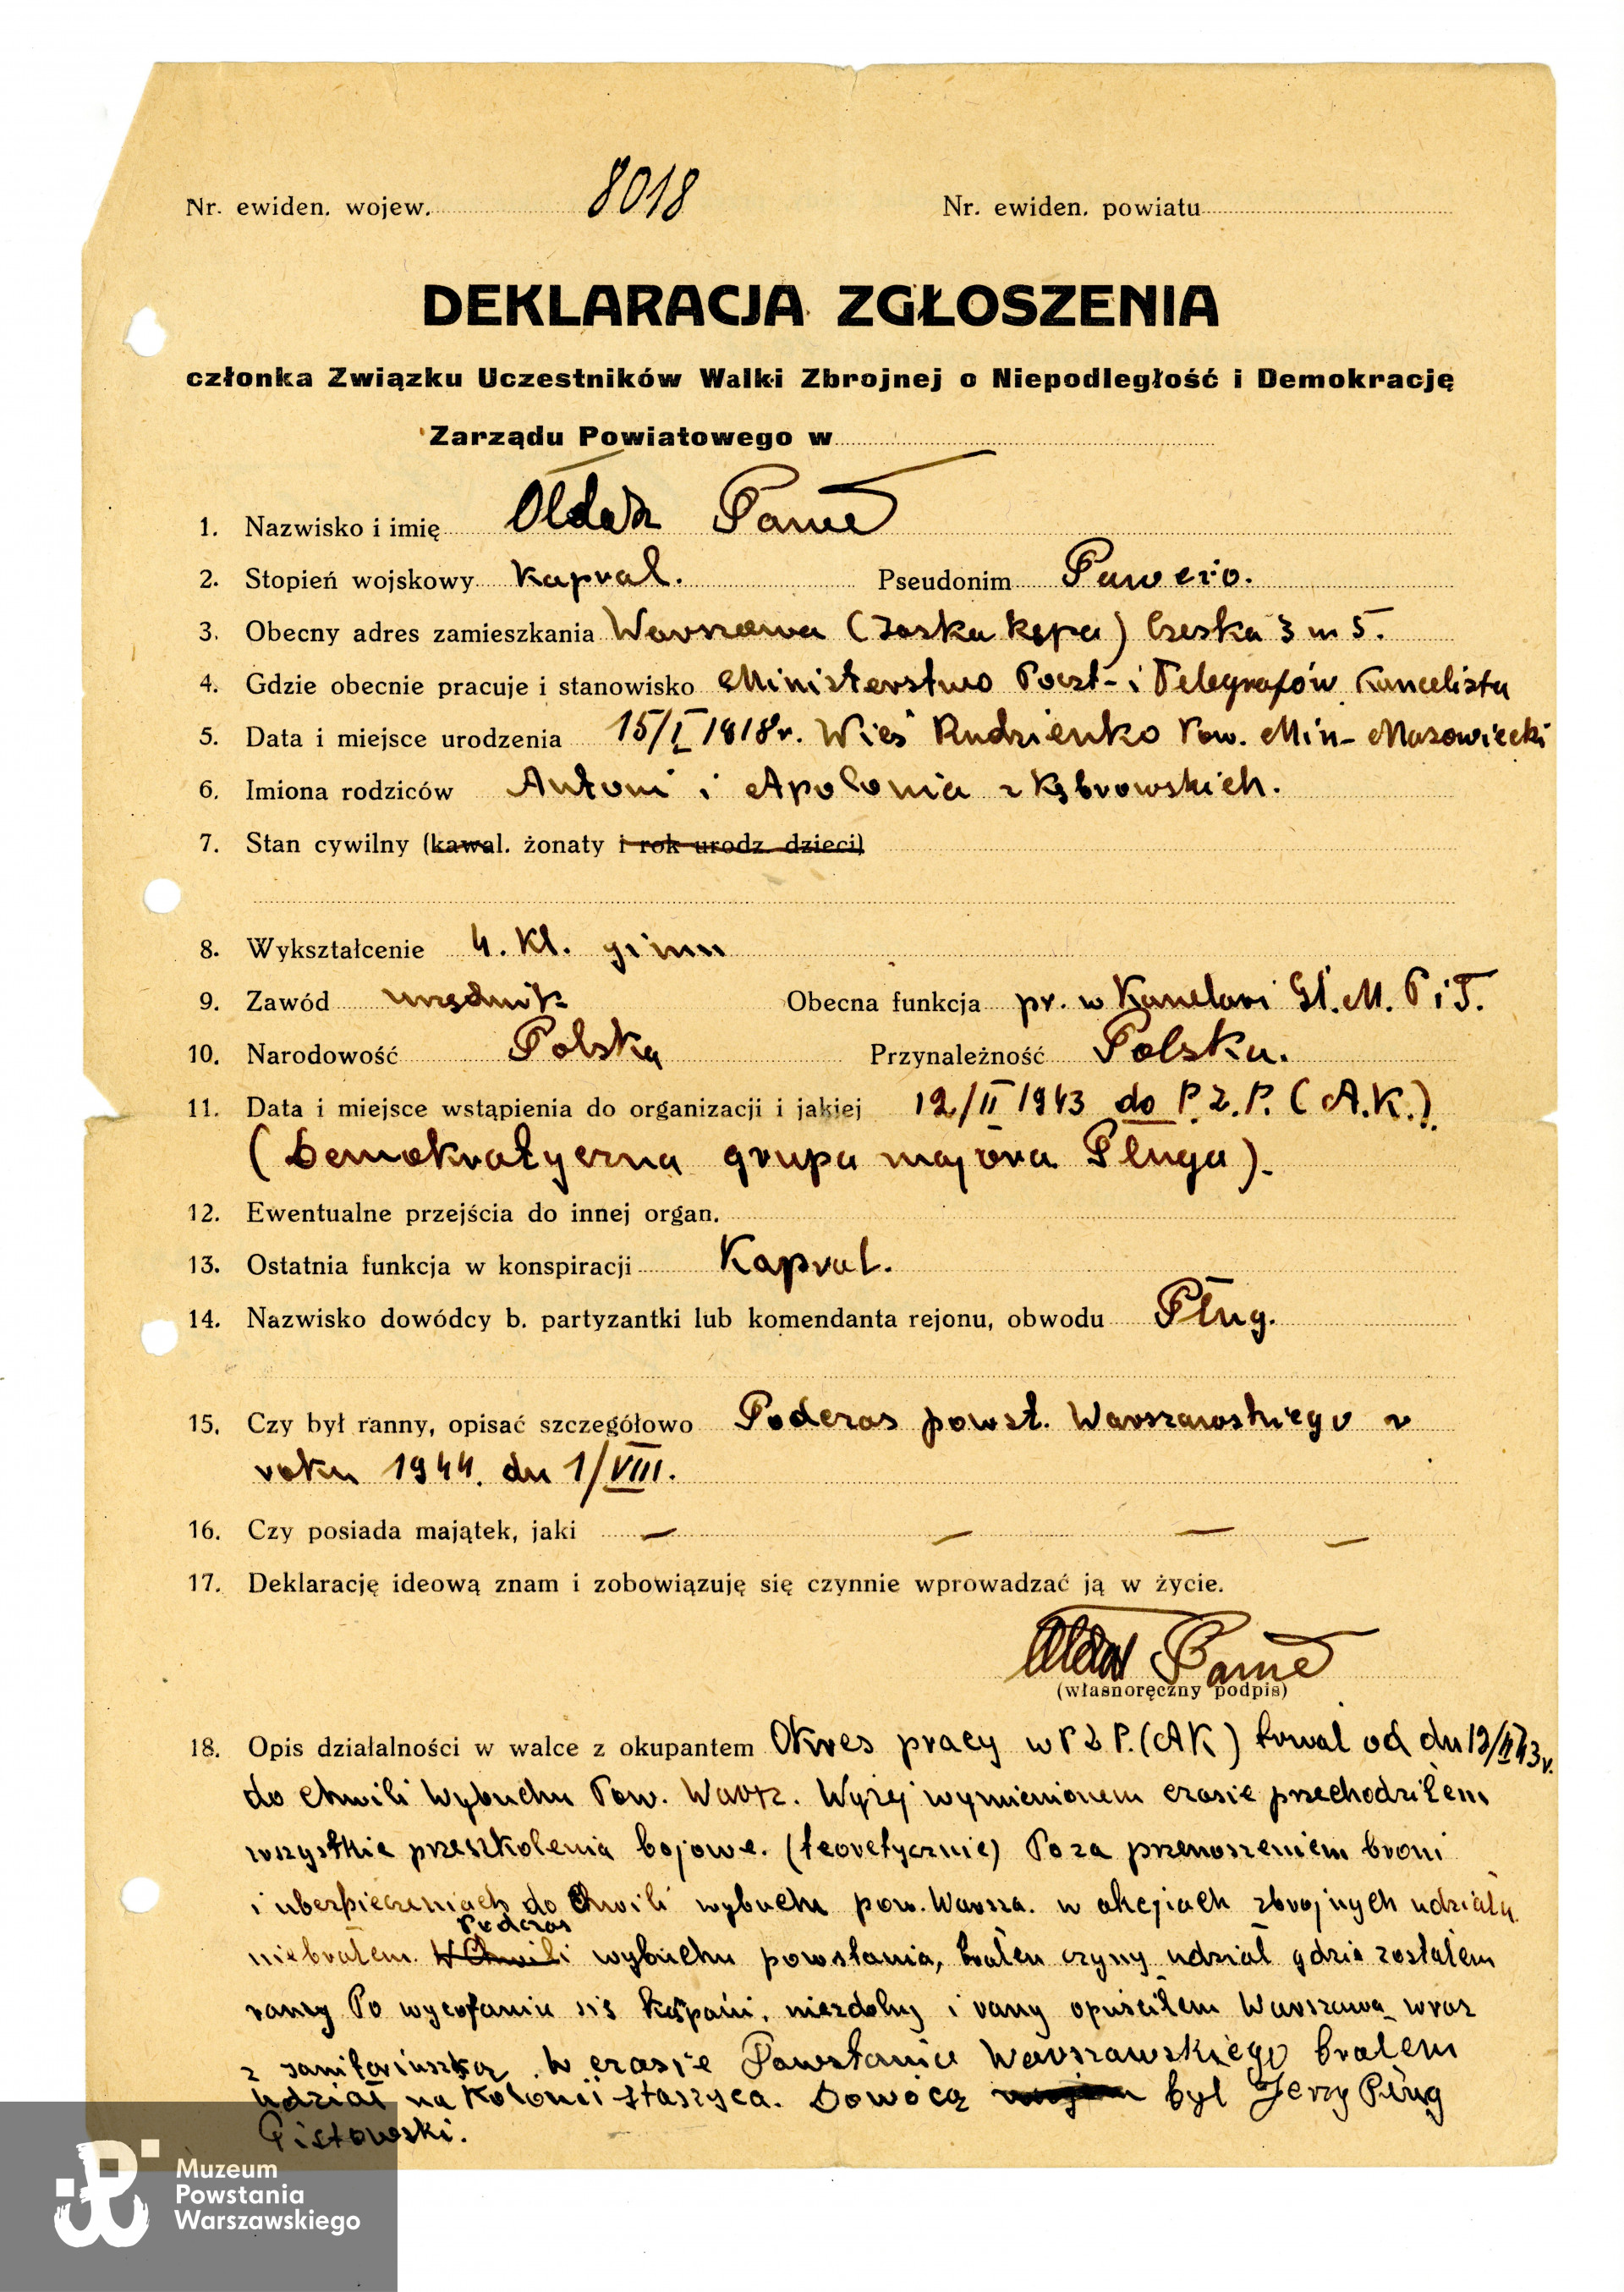 Nr. ewiden. wojew. 8018 Nr. ewiden. powiatu
DEKLARACJA ZGŁOSZENIA
członka Związku Uczestników Walki Zbrojnej o Niepodległość i Demokrację
Zarządu Powiatowego w
1. Nazwisko i imię Ołdak Paweł
2. Stopień wojskowy Kapral. Pseudonim Pawero.
3. Obecny adres zamieszkania Warszawa (Saska Kępa) Czeska 3 m 5.
4. Gdzie obecnie pracuje i stanowisko Ministerstwo Poczt- i Telegrafów Kancelista
5. Data i miejsce urodzenia 15/I 1918r. Wieś Rudzienko Pow. Min- Mazowiecki
6. Imiona rodziców Antoni i Apolonia z Kębrowskich.
7. Stan cywilny (kawal. żonaty i rok urodz. dzieci)
8. Wykształcenie 4. Kl. gimn
9. Zawód urzędnik Obecna funkcja pr. w Kancelari Gł. M. P i T.
10. Narodowość Polską Przynależność Polska.
11. Data i miejsce wstąpienia do organizacji i jakiej 12/II 1943 do P.Z.P. (A.K.)
(Demokratyczna grupa majora Pługa).
12. Ewentualne przejścia do innej organ.
13. Ostatnia funkcja w konspiracji Kapral.
14. Nazwisko dowódcy b. partyzantki lub komendanta rejonu, obwodu Pług.
15. Czy był ranny, opisać szczegółowo Podczas powst. Warszawskiego w
roku 1944. dn 1/VIII.
16. Czy posiada majątek, jaki — — — —
17. Deklarację ideową znam i zobowiązuję się czynnie wprowadzać ją w życie.
Ołdak Paweł
(własnoręczny podpis)
18. Opis działalności w walce z okupantem Okres pracy w P Z P. (AK) trwał od dn 12/II 43r.
do chwili wybuchu Pow. Warsz. Wyżej wymienionem czasie przechodziłem
wszystkie przeszkolenia bojowe. (teoretycznie) Poza przenoszeniem broni
i ubezpieczeniach do chwili wybuchu pow. Warsza. w akcjach zbrojnych udziału
Podczas
niebrałem. W Chwili wybuchu powstania, brałem czyny udział gdzie zostałem
rany Po wycofaniu się kąpani, niezdolny i rany opuściłem Warszawę wraz
z sanitariuszką. W czasie Powstania Warszawskiego brałem
udział na Kolonii Staszyca. Dowócą był Jerzy Pług
Pistowski.
Muzeum
Powstania
Warszawskiego